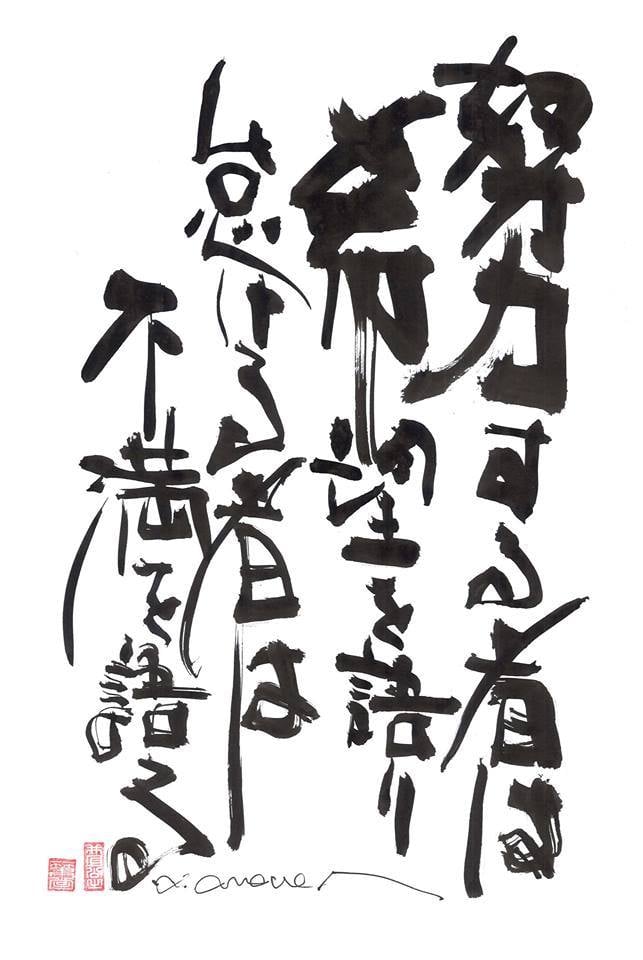 努力する者は
希望を語り
怠ける者は
不満を語る。